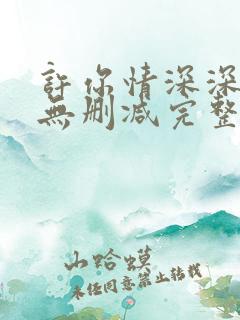 許你情深深
無删减完整
山蛤蟆
未经同意禁止转载